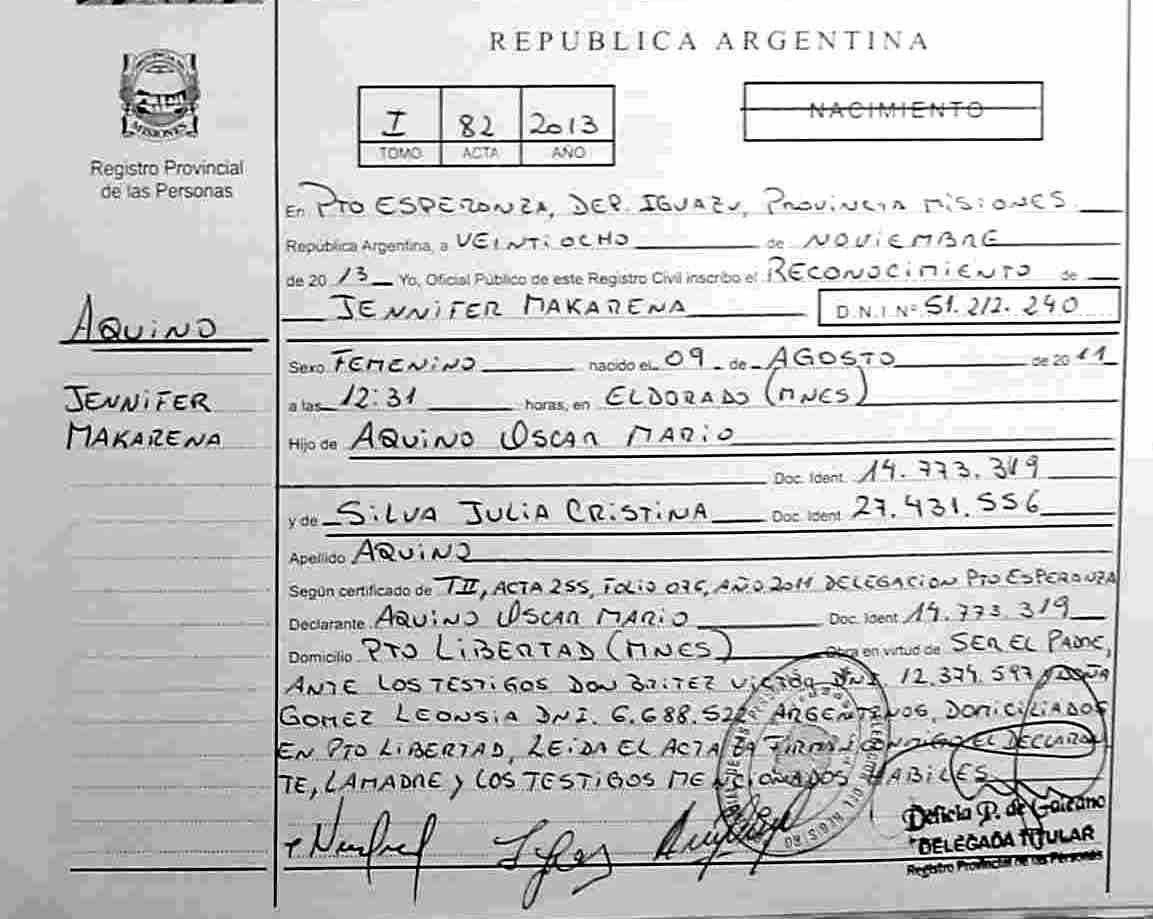 REPUBLICA ARGENTINA
MISIONES
Registro Provincial
de las Personas
I 82 2013
TOMO ACTA AÑO
NACIMIENTO
En PTO ESPERANZA, DEP. IGUAZU, PROVINCIA MISIONES
República Argentina, a VEINTIOCHO de NOVIEMBRE
de 2013 Yo, Oficial Público de este Registro Civil inscribo el RECONOCIMIENTO de
JENNIFER MAKARENA D.N.I. Nº 51.212.240
AQUINO
JENNIFER
MAKARENA
Sexo FEMENINO nacido el 09 de AGOSTO de 2011
a las 12:31 horas, en ELDORADO (MNES)
Hijo de AQUINO OSCAR MARIO
Doc. Ident. 14.773.319
y de SILVA JULIA CRISTINA Doc. Ident. 27.431.556
Apellido AQUINO
Según certificado de TII, ACTA 255, FOLIO 076, AÑO 2011 DELEGACION PTO ESPERANZA
Declarante AQUINO OSCAR MARIO Doc. Ident. 14.773.319
Domicilio PTO LIBERTAD (MNES) Obra en virtud de SER EL PADRE,
ANTE LOS TESTIGOS DON BRITEZ VICTOR DNI 12.374.597 DOÑA
GOMEZ LEONSIA DNI. 6.688.522 ARGENTINOS, DOMICILIADOS
EN PTO LIBERTAD, LEIDA EL ACTA LA FIRMAN CONMIGO EL DECLARAN-
TE, LA MADRE Y LOS TESTIGOS MENCIONADOS HABILES
DELEGADA TITULAR
Registro Provincial de las Personas